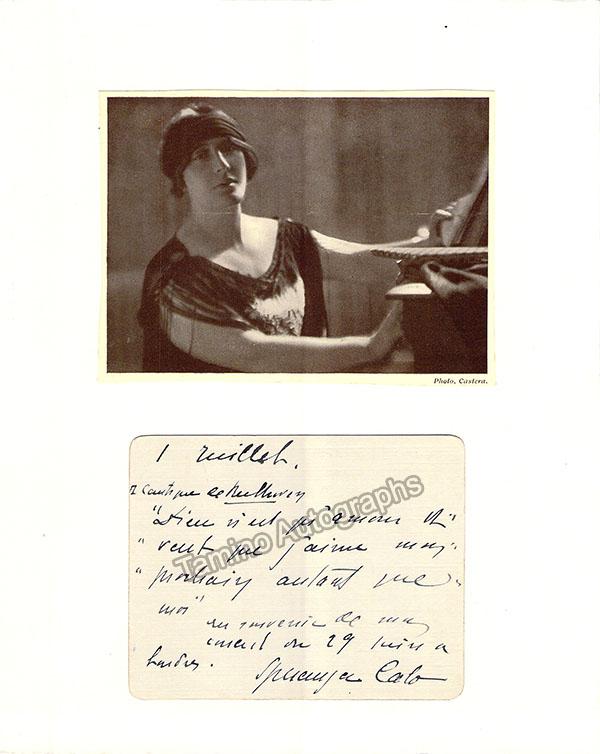 Photo, Castera.
1 Juillet.
Cantique de Beethoven
"Dieu n'est qu'amour et"
"veut que j'aime mon"
"prochain autant que"
moi"
en souvenir de mon
concert du 29 Juin a
Londres.
Speranza Calo
Tamino Autographs